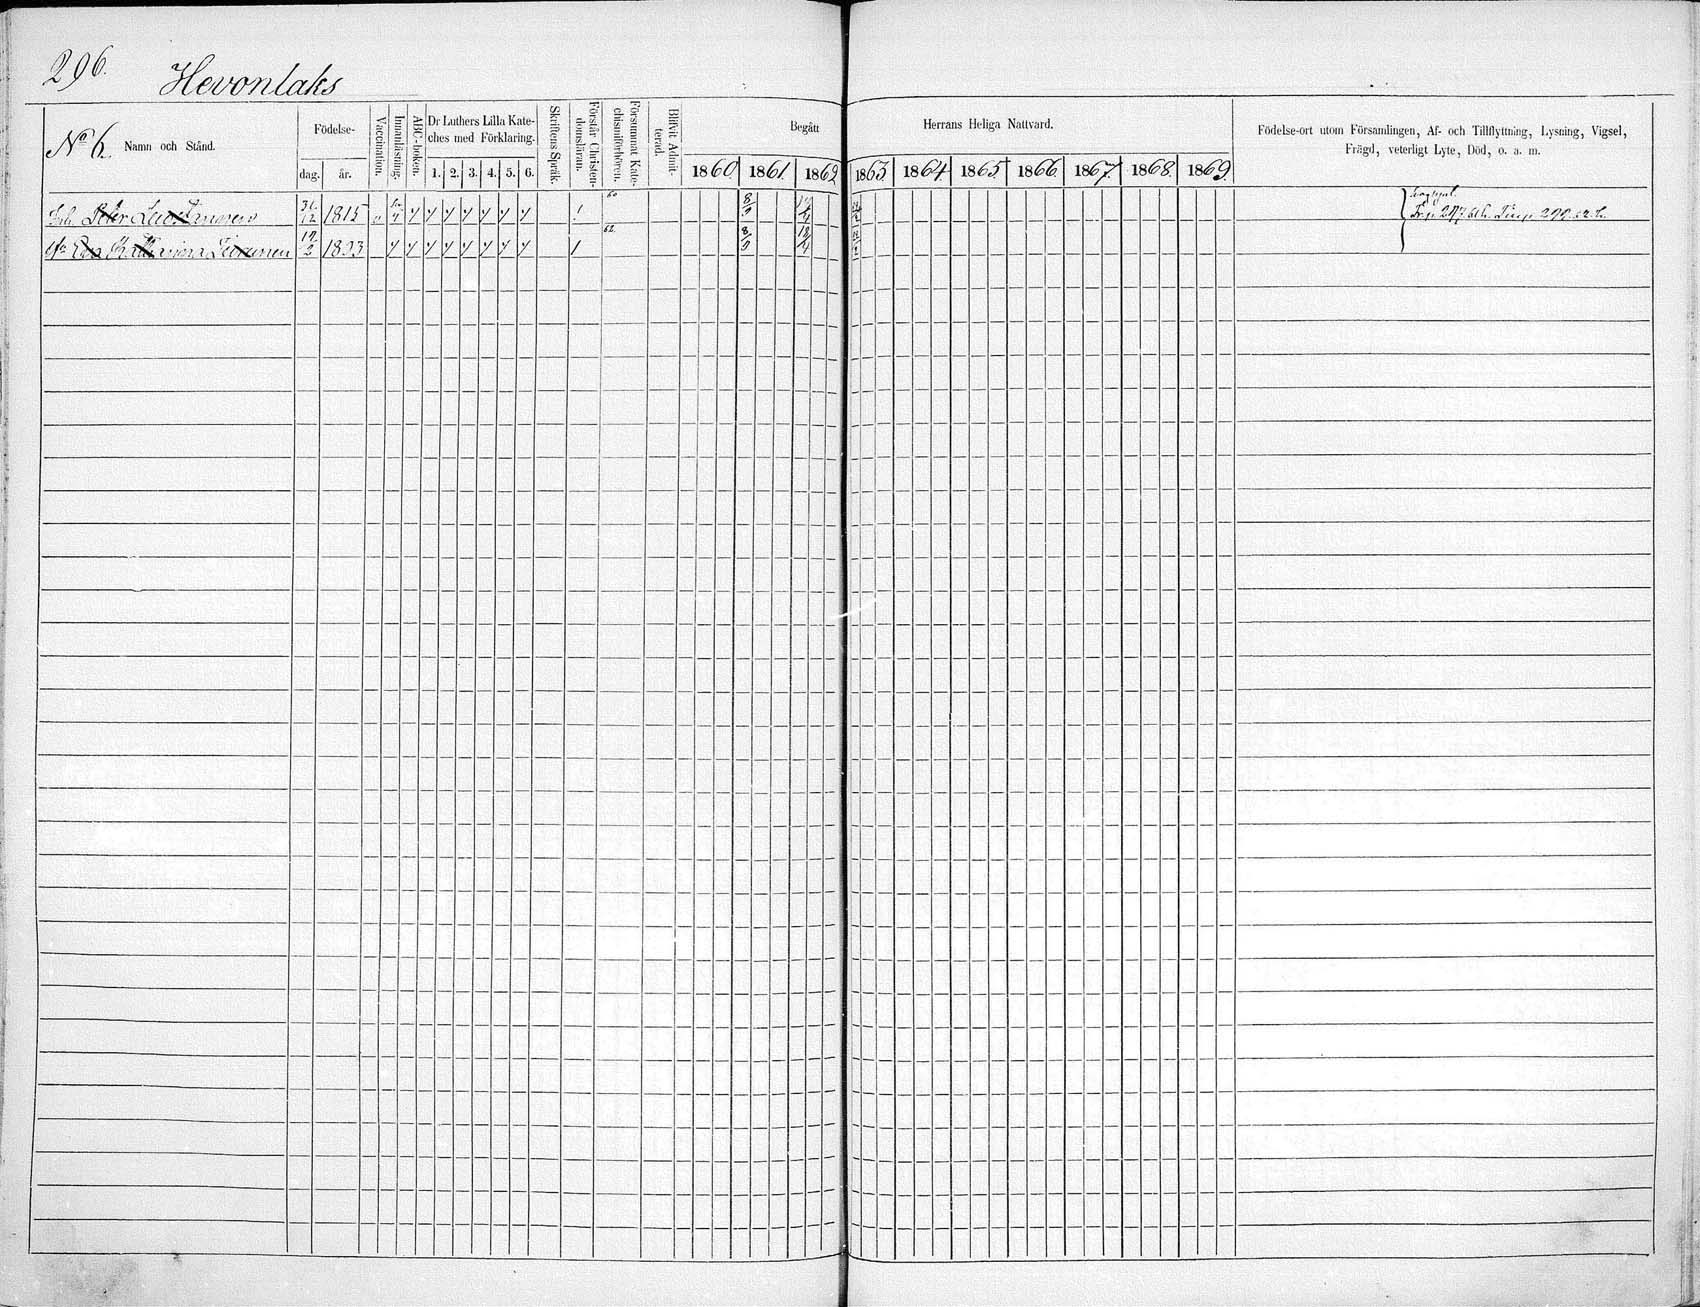 296.
Hevonlaks
No 6. Namn och Stånd.
Födelse-
dag. år.
Vaccination.
Innanläsning.
ABC-boken.
Dr Luthers Lilla Kate-
ches med Förklaring.
1. 2. 3. 4. 5. 6.
Skriftens Språk.
Förstår Christen-
domsläran.
Försummat Kate-
chismiförhören.
Blifvit Admit-
terad.
Begått Herrans Heliga Nattvard.
1860 1861 1862 1863 1864 1865 1866 1867 1868 1869
Födelse-ort utom Församlingen, Af- och Tillflyttning, Lysning, Vigsel,
Frägd, veterligt Lyte, Död, o. a. m.
Inh. Peter 31/12 1815 60 8/9
Fr. p. 297. 61 h. 299. 62. h.
Eva Katharina 12/2 1833 62. 8/9 12/4